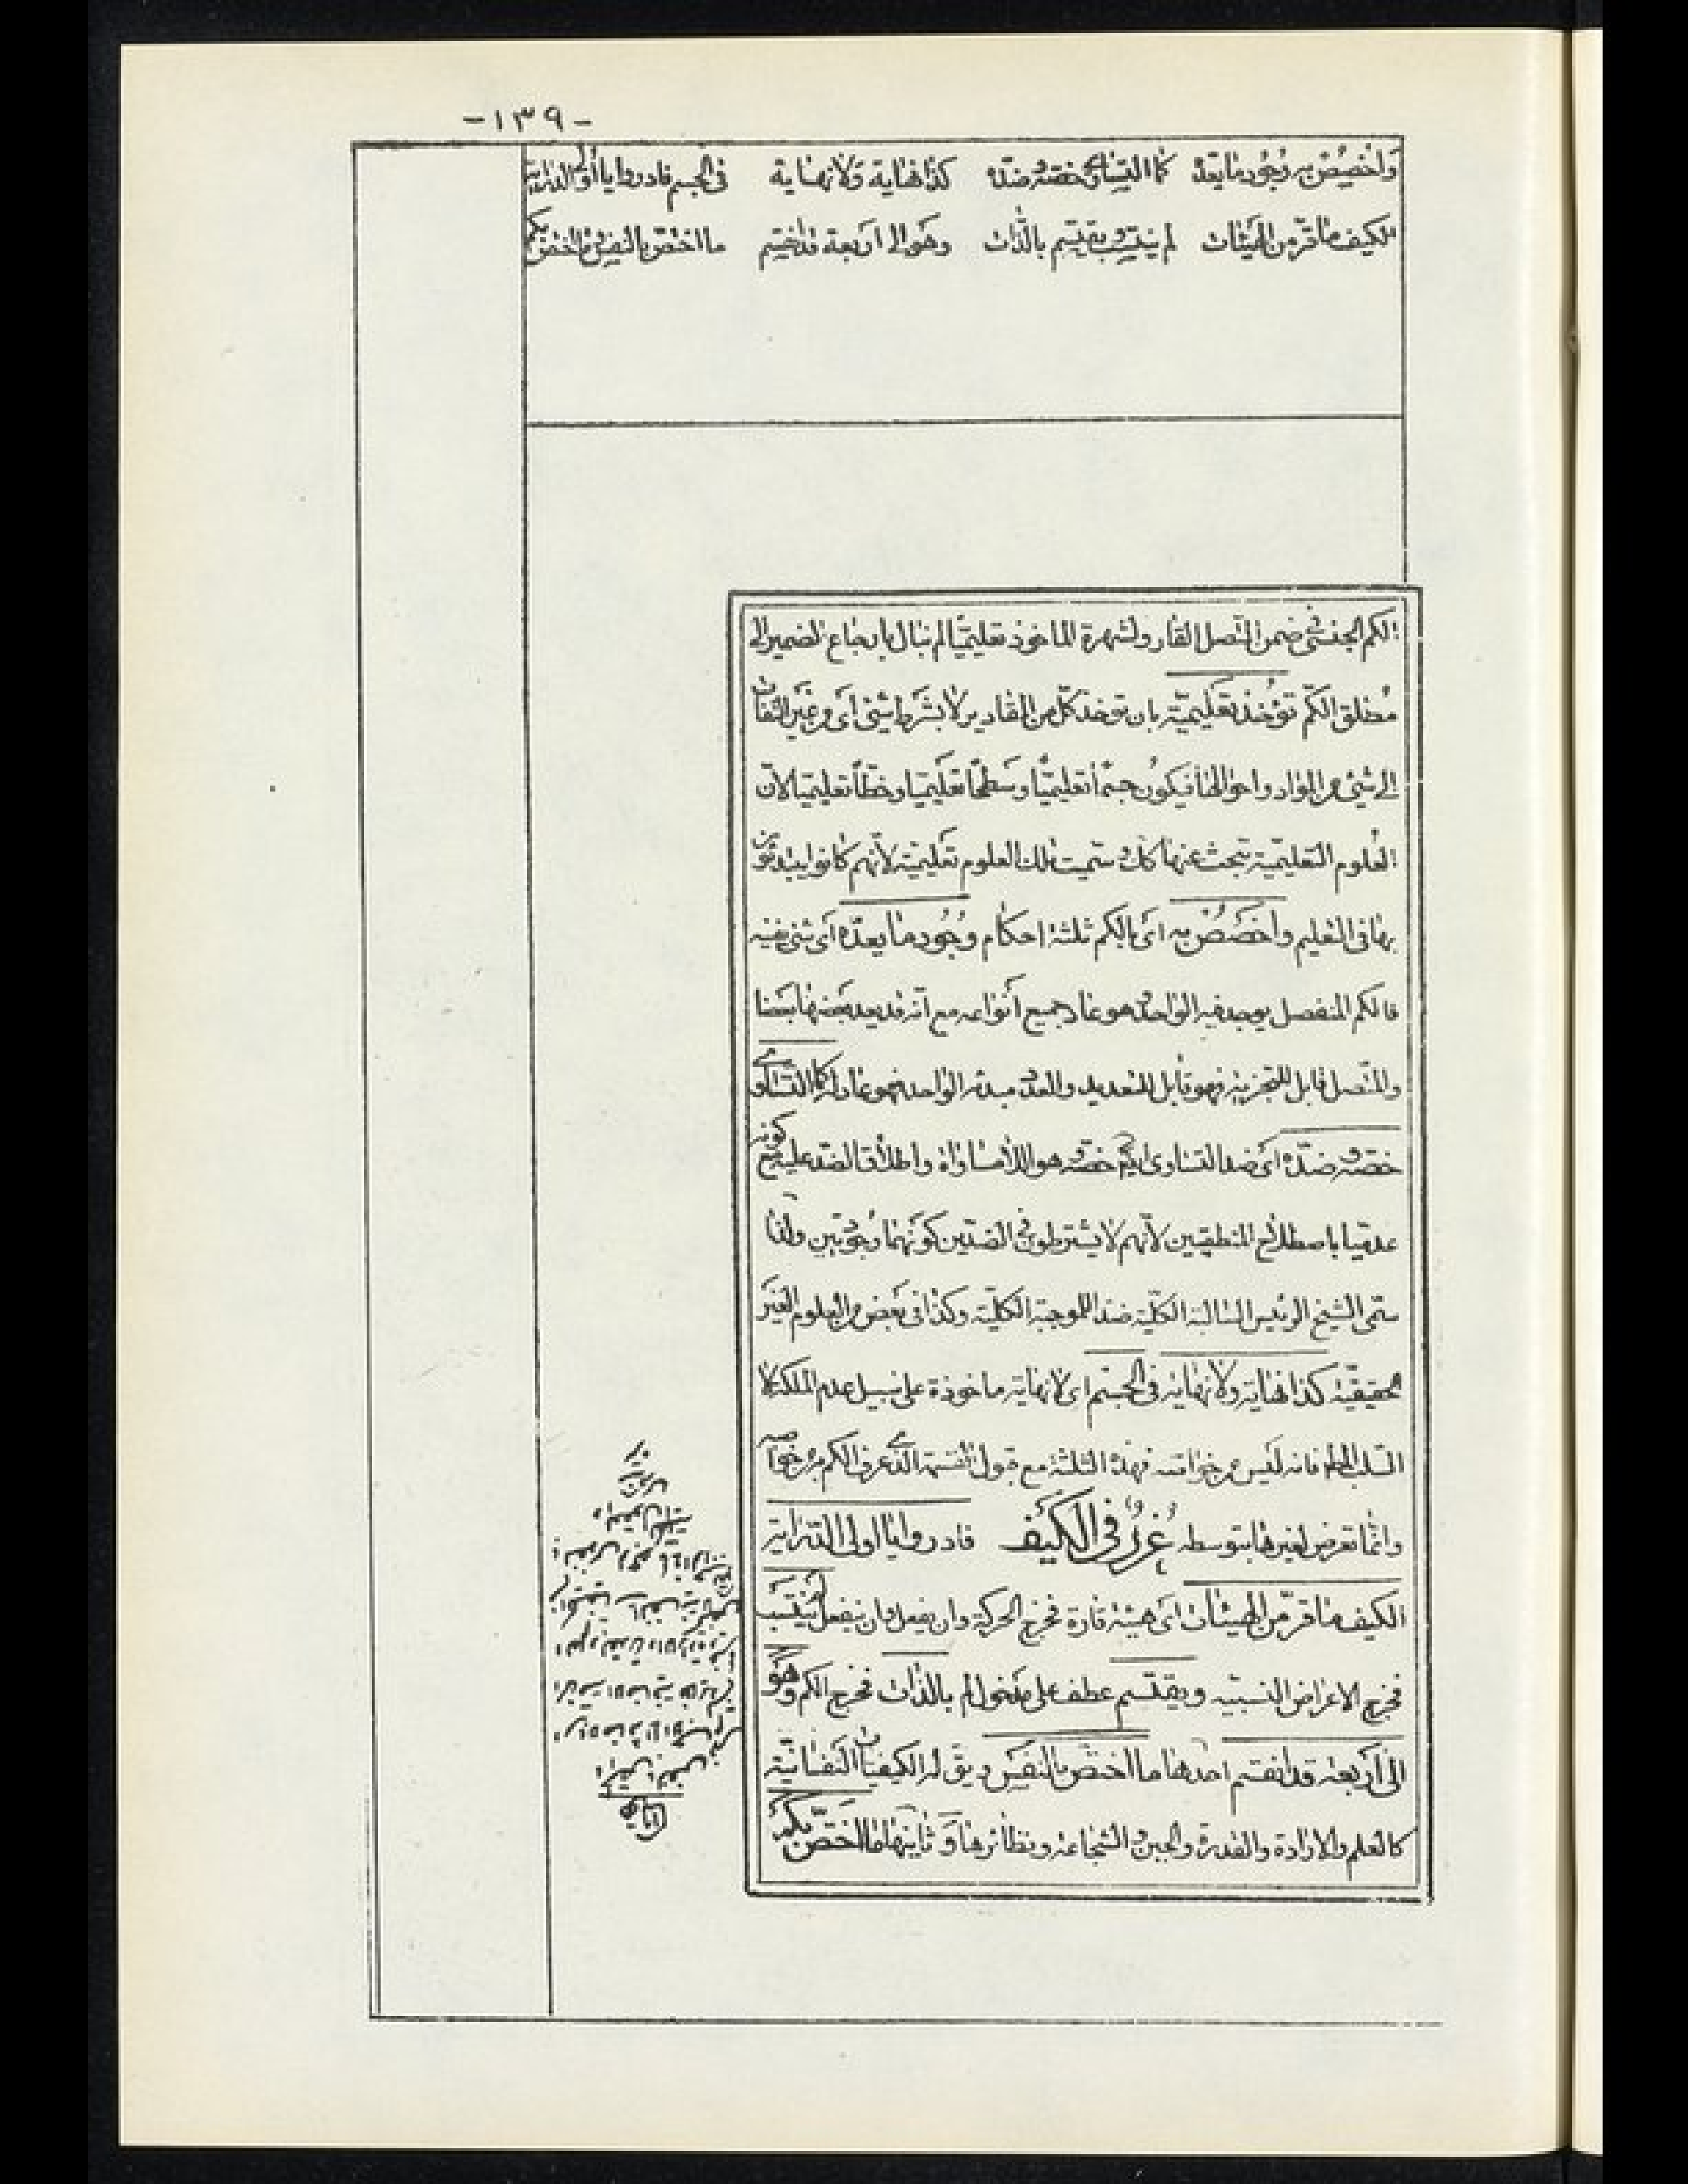 -١٣٩-
وَاخْصُصْ بِهِ وُجُودَ مَا يَعُدّهُ كَمَا التَّسَاوِي خَصَّهُ وَضِدّهُ كَذَا نِهَايَة وَلَا نِهَايَة فِي الجِسم فَادر وايا أُولي الدّراية
الكيف مَا قَرَّ مِنَ الهَيْئَات لَم يَنتَسِب وَيَقْتَسِم بِالذَّات وَهوَ إلى أَرْبَعَة قَد انقَسَم مَا اختصّ بِالنفس وَمَا اختصّ بكم
الكم الجنسى فى ضمن المتّصل القار ولشهرة الماخوذ تعليميّا لم نبال بارجاع الضمير الى
مُطلق الكَمّ تؤخذ تعليميّة بان توخذ كلّ من المقادير لا بشرط شئ اى من غير التفات
الى شئ من المواد واحوالها فيكون جسْماً تعليميّا وسَطحًا تعليميا وخطّاً تعليميا لانّ
العلوم التعليمية تبحث عنها كك وسميت تلك العلوم تعليميّة لانّهم كانوا يبتدؤن
بها فى التعليم واخصُصْ به اى بالكم ثلثة احكام وُجُود ما يعدّه اى شئ يفنيه
فالكم المنفصل يوجد فيه الواحد وهو عاد جميع أنواعه مع انّه قد يعد بعضها بعضا
والمتّصل قابل للتجزية فهو قابل للتعديد والعدّ مبدئه الواحد فهو عادله كما التساوى
خصّه وضدّه اى ضد التساوى ايضا خصّه وهو اللامساواة واطلاق الضد عليه مع كونه
عدميّا باصطلاح المنطقيين لانّهم لا يشترطون فى الضدّين كونهما وجوديّين ولذا
سمّى الشيخ الرئيس السّالبة الكلّية ضد الموجبة الكلّية وكذا فى بَعض من العلوم الغير
الحقيقيّة كذا نهاية ولا نهاية فى الجسم اى لا نهاية ماخوذة على سبيل عدم الملكة لا
السّلب المط فانه ليس من خواصه فهذه الثلثة مع قبول القسمة الذى عرف الكم به من خواصه
وانّما تعرض لغيرها بتوسطه غُرَرٌ فى الكَيْف فادر وايا اولى الدّراية
الكيف ما قرّ من الهيئات اى هيئة قارة فخرج الحركة وان يفعل وان ينفعل لم ينتسب
فخرج الاعراض النسبيّة ويقتسم عطف على مدخول لم بالذّات فخرج الكم وهو
الى أربعة قد انقسم احدها ما اختصّ بالنفس ويق له الكيفيات النفسانيّة
كالعلم والارادة والقدرة والجبن والشجاعة ونظائرها وثانيها ما اختصّ بكم